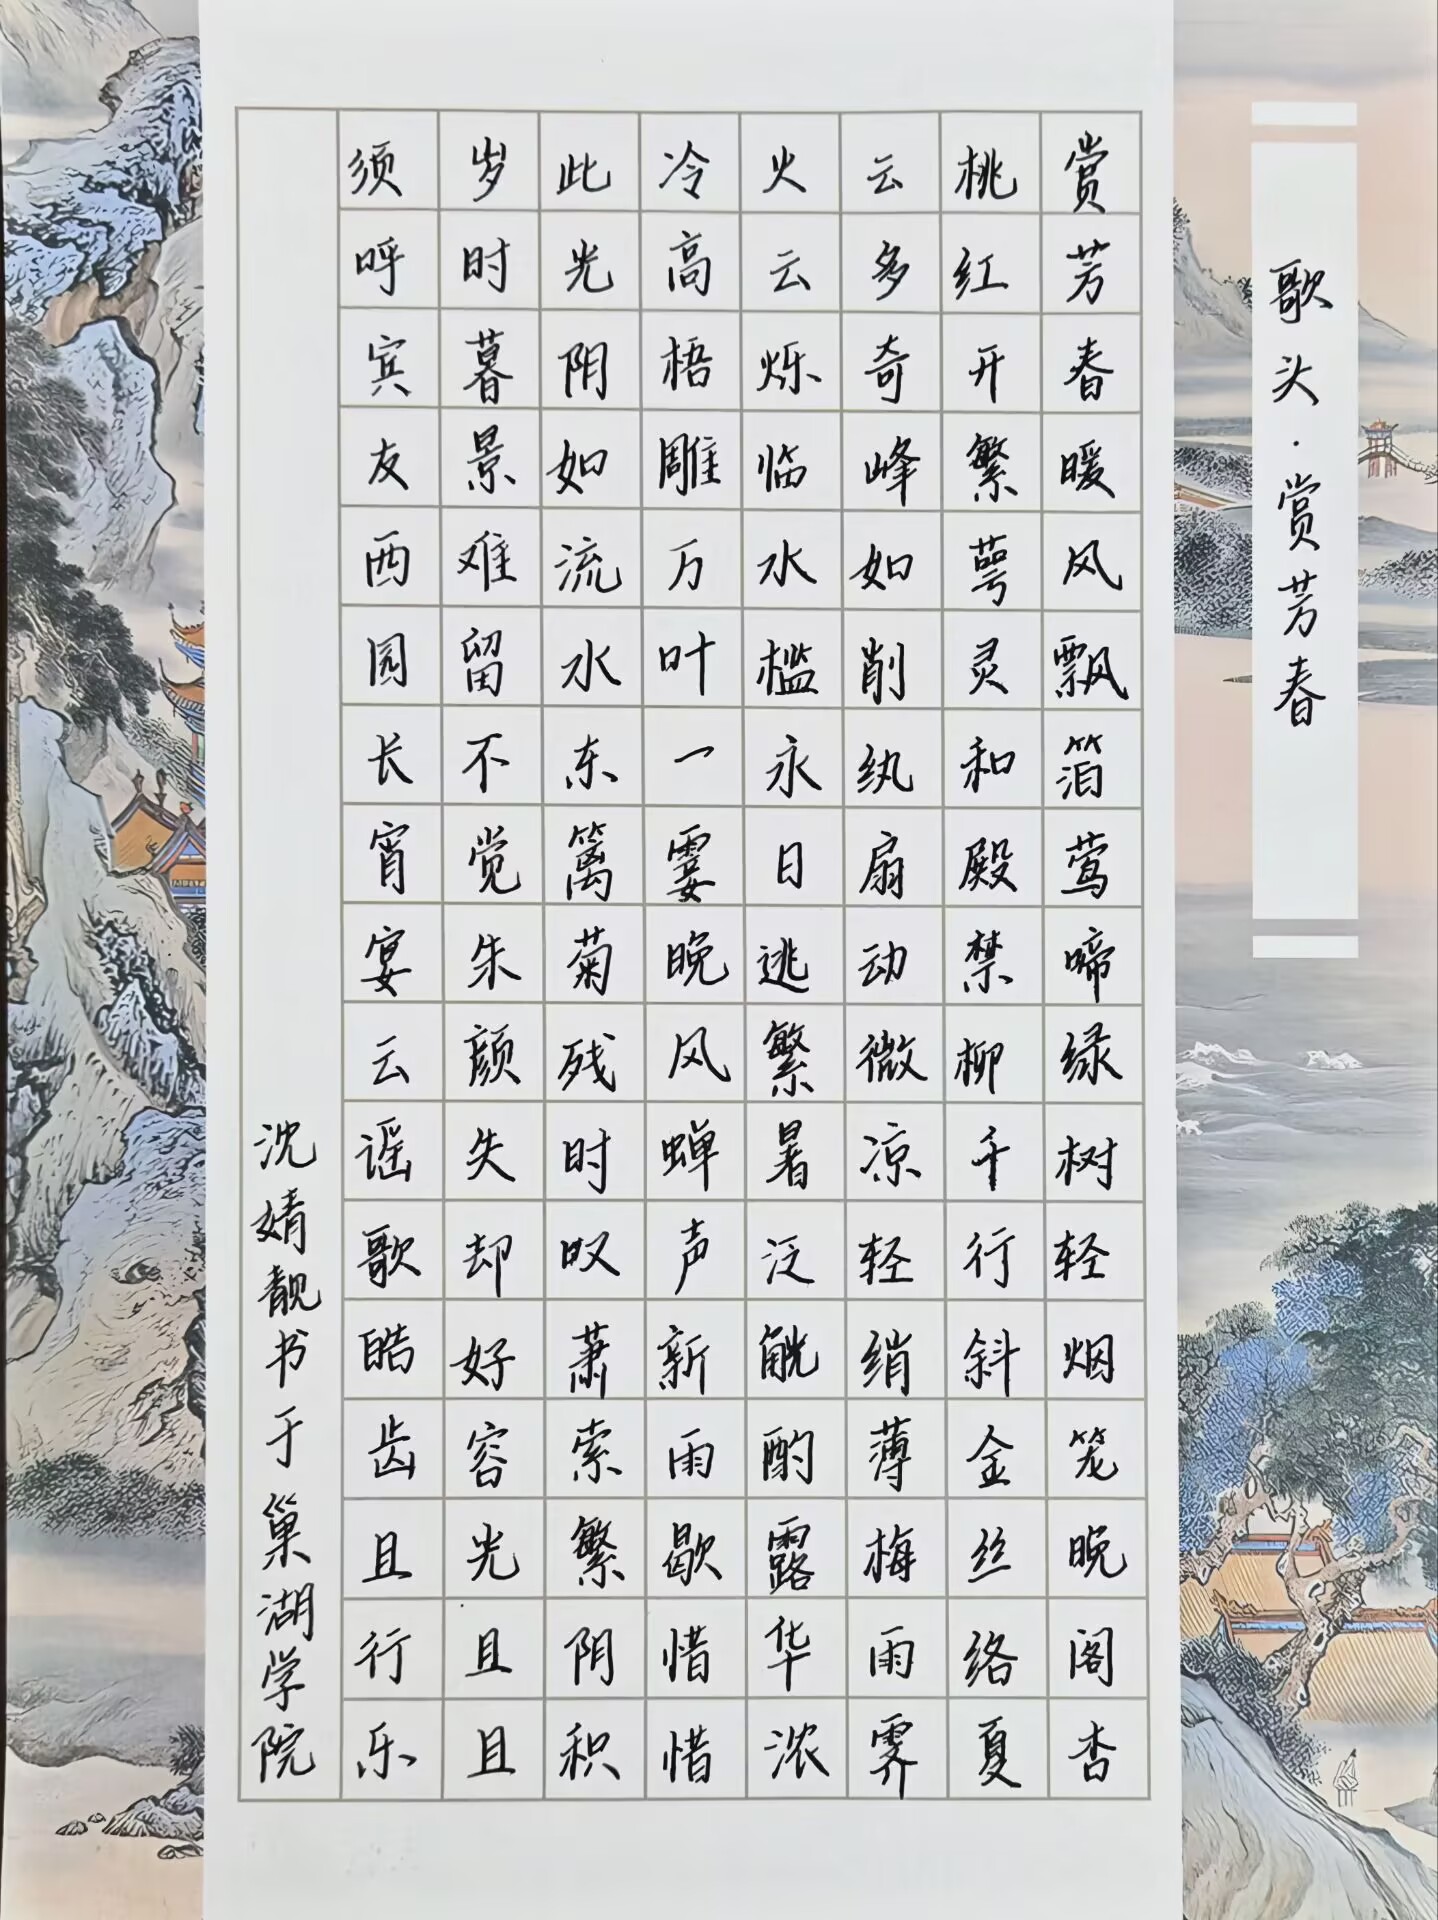 歌头·赏芳春
赏芳春暖风飘箔莺啼绿树轻烟笼晚阁杏
桃红开繁萼灵和殿禁柳千行斜金丝络夏
云多奇峰如削纨扇动微凉轻绡薄梅雨霁
火云烁临水槛永日逃繁暑泛觥酌露华浓
冷高梧雕万叶一霎晚风蝉声新雨歇惜惜
此光阴如流水东篱菊残时叹萧索繁阴积
岁时暮景难留不觉朱颜失却好容光且且
须呼宾友西园长宵宴云谣歌皓齿且行乐
沈婧靓书于巢湖学院